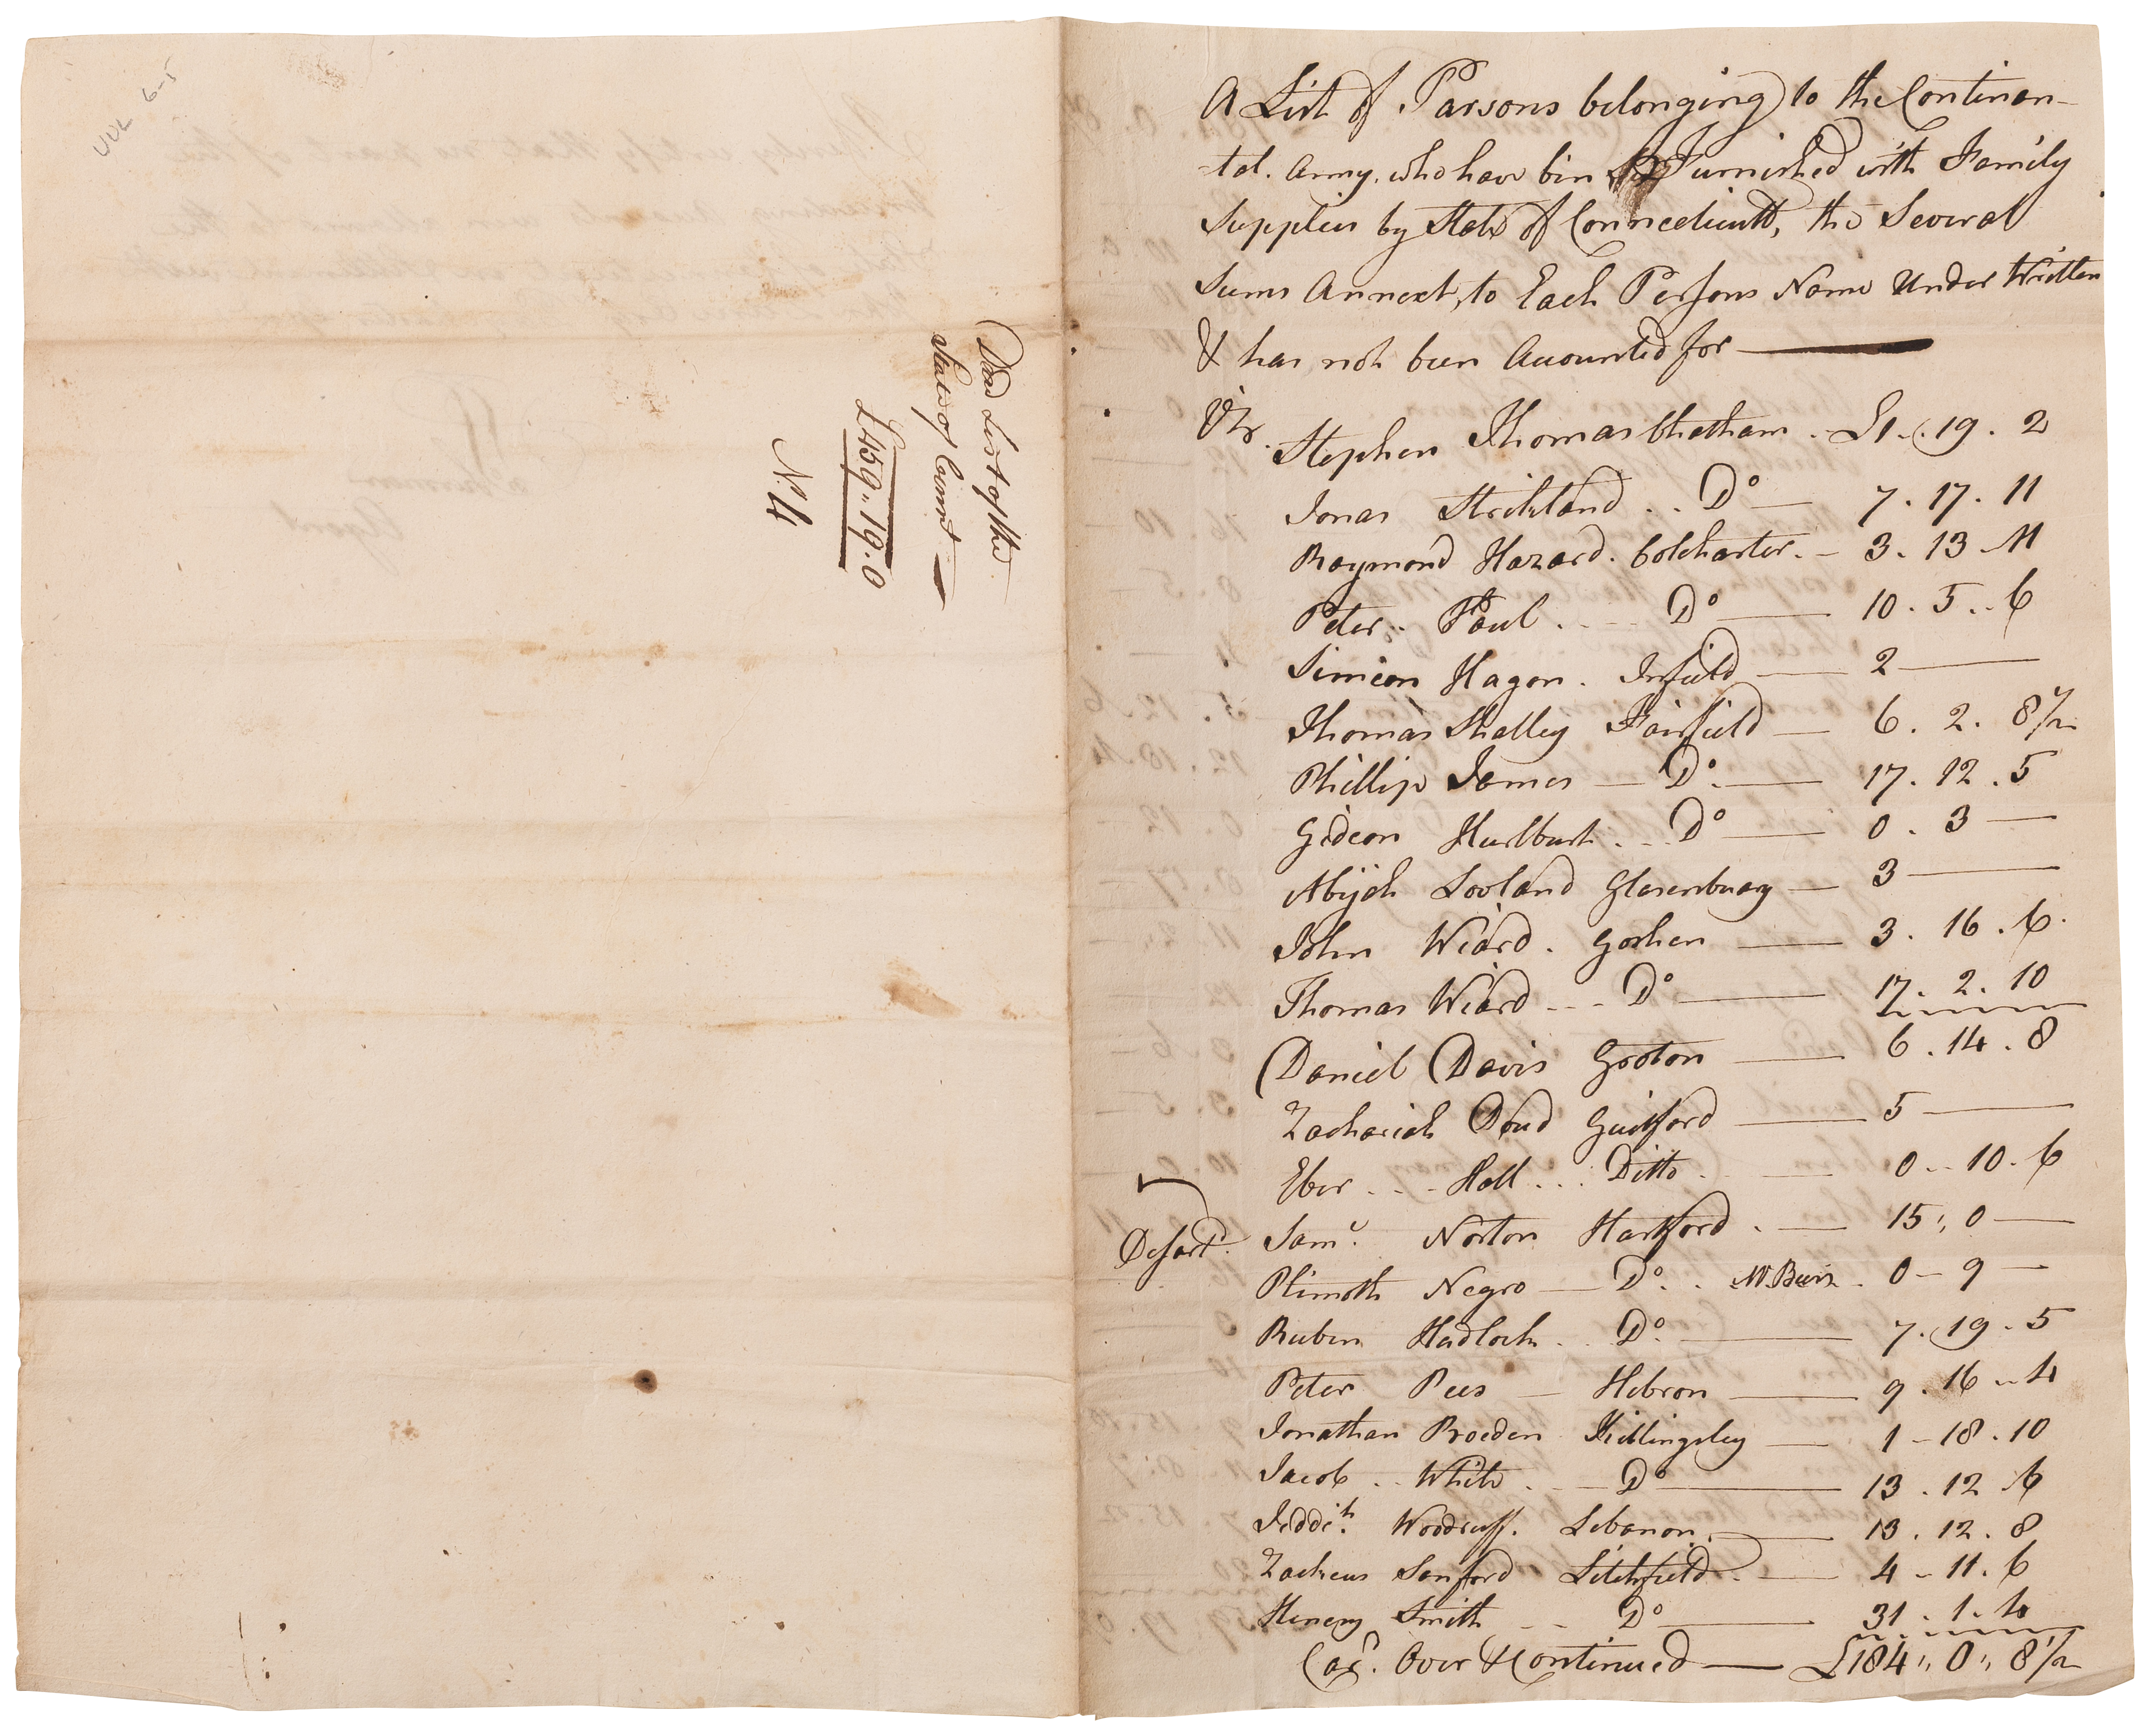 UUL 6-5
Dead List of the
State of Connt
£459.19.0
No 4
A List of Parsons belonging to the Continen-
-tal. Army, who have bin Furnished with Family
Supplies by State of Connecticutt, the Several
Sums Annext, to Each Persons Name Under Written
& has not been Accounted for
Viz. Stephen Thomas Chatham - £1 - 19 . 2
Jonas Strickland .. Do — 7 . 17 . 11
Raymond Hazard. Colchaster. - 3 . 13 . 11
Peter . Paul . . . . Do — 10 . 5 .. 6
Simeon Hagon . Infield — 2 —
Thomas Shelley Fairfield — 6 . 2 . 8 1/2
Phillip James — Do. — 17 . 12 . 5
Gideon Hurlburt . . Do — 0 . 3 —
Abijah Loveland Glasenbuary — 3 —
John Weard . Goshen — 3 . 16 . 6
Thomas Weard - - - Do — 17 . 2 . 10
Daniel Davis Groton — 6 . 14 . 8
Zachariah Doud Guilford — 5 —
Eber . . . Hall . . . Ditto . — 0 .. 10 . 6
Desartd. Saml. Norton Hartford . — 15 ,, 0 —
Plimoth Negro — Do. . 0 — 9 —
Ruben Hadlock . . Do. — 7 . 19 . 5
Peter Pees — Hebron — 9 . 16 .. 4
Jonathan Broeden Killingsley — 1 - 18 . 10
Jacob . . White . — Do — 13 . 12 . 6
Jeddih. Woodruff. Lebanon. — 13 . 12 . 8
Zacheus Sanford Litchfield . — 4 - 11 . 6
Henery Smith - - Do — 31 . 1 . 4
Cad. Over & Continued — £184 ,, 0 ,, 8 1/2